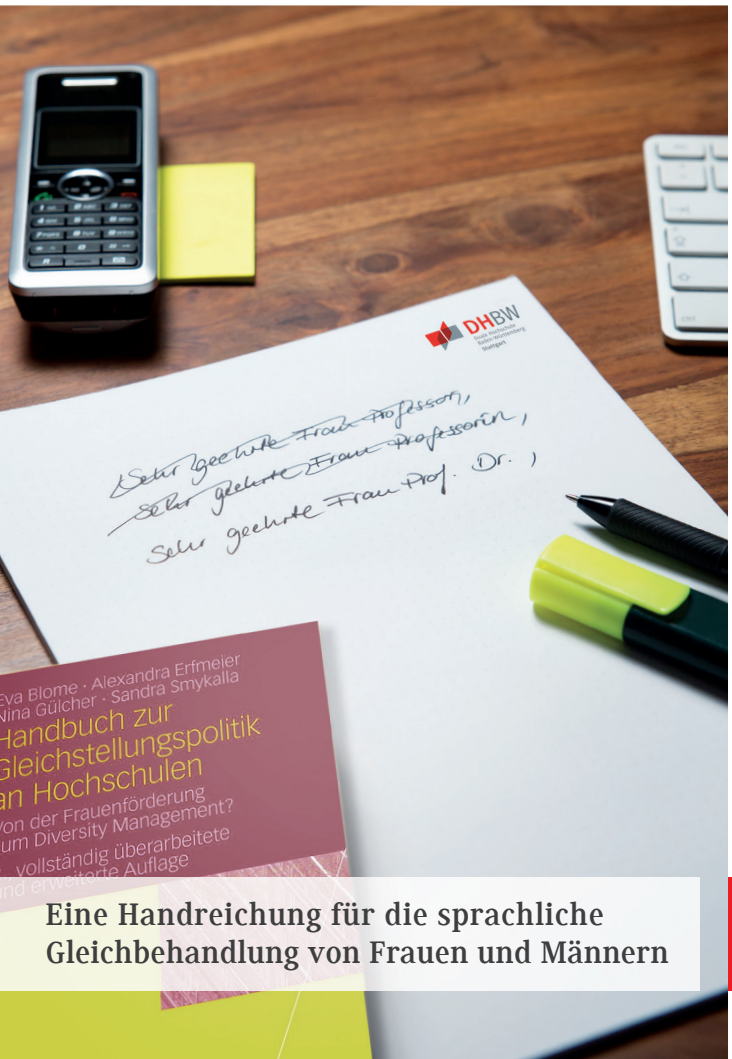 DHBW
Duale Hochschule
Baden-Württemberg
Stuttgart
Sehr geehrte Frau Professor,
Sehr geehrte Frau Professorin,
Sehr geehrte Frau Prof. Dr. ,
Eva Blome · Alexandra Erfmeier
Nina Gülcher · Sandra Smykalla
Handbuch zur
Gleichstellungspolitik
an Hochschulen
Von der Frauenförderung
zum Diversity Management?
vollständig überarbeitete
und erweiterte Auflage
Eine Handreichung für die sprachliche
Gleichbehandlung von Frauen und Männern